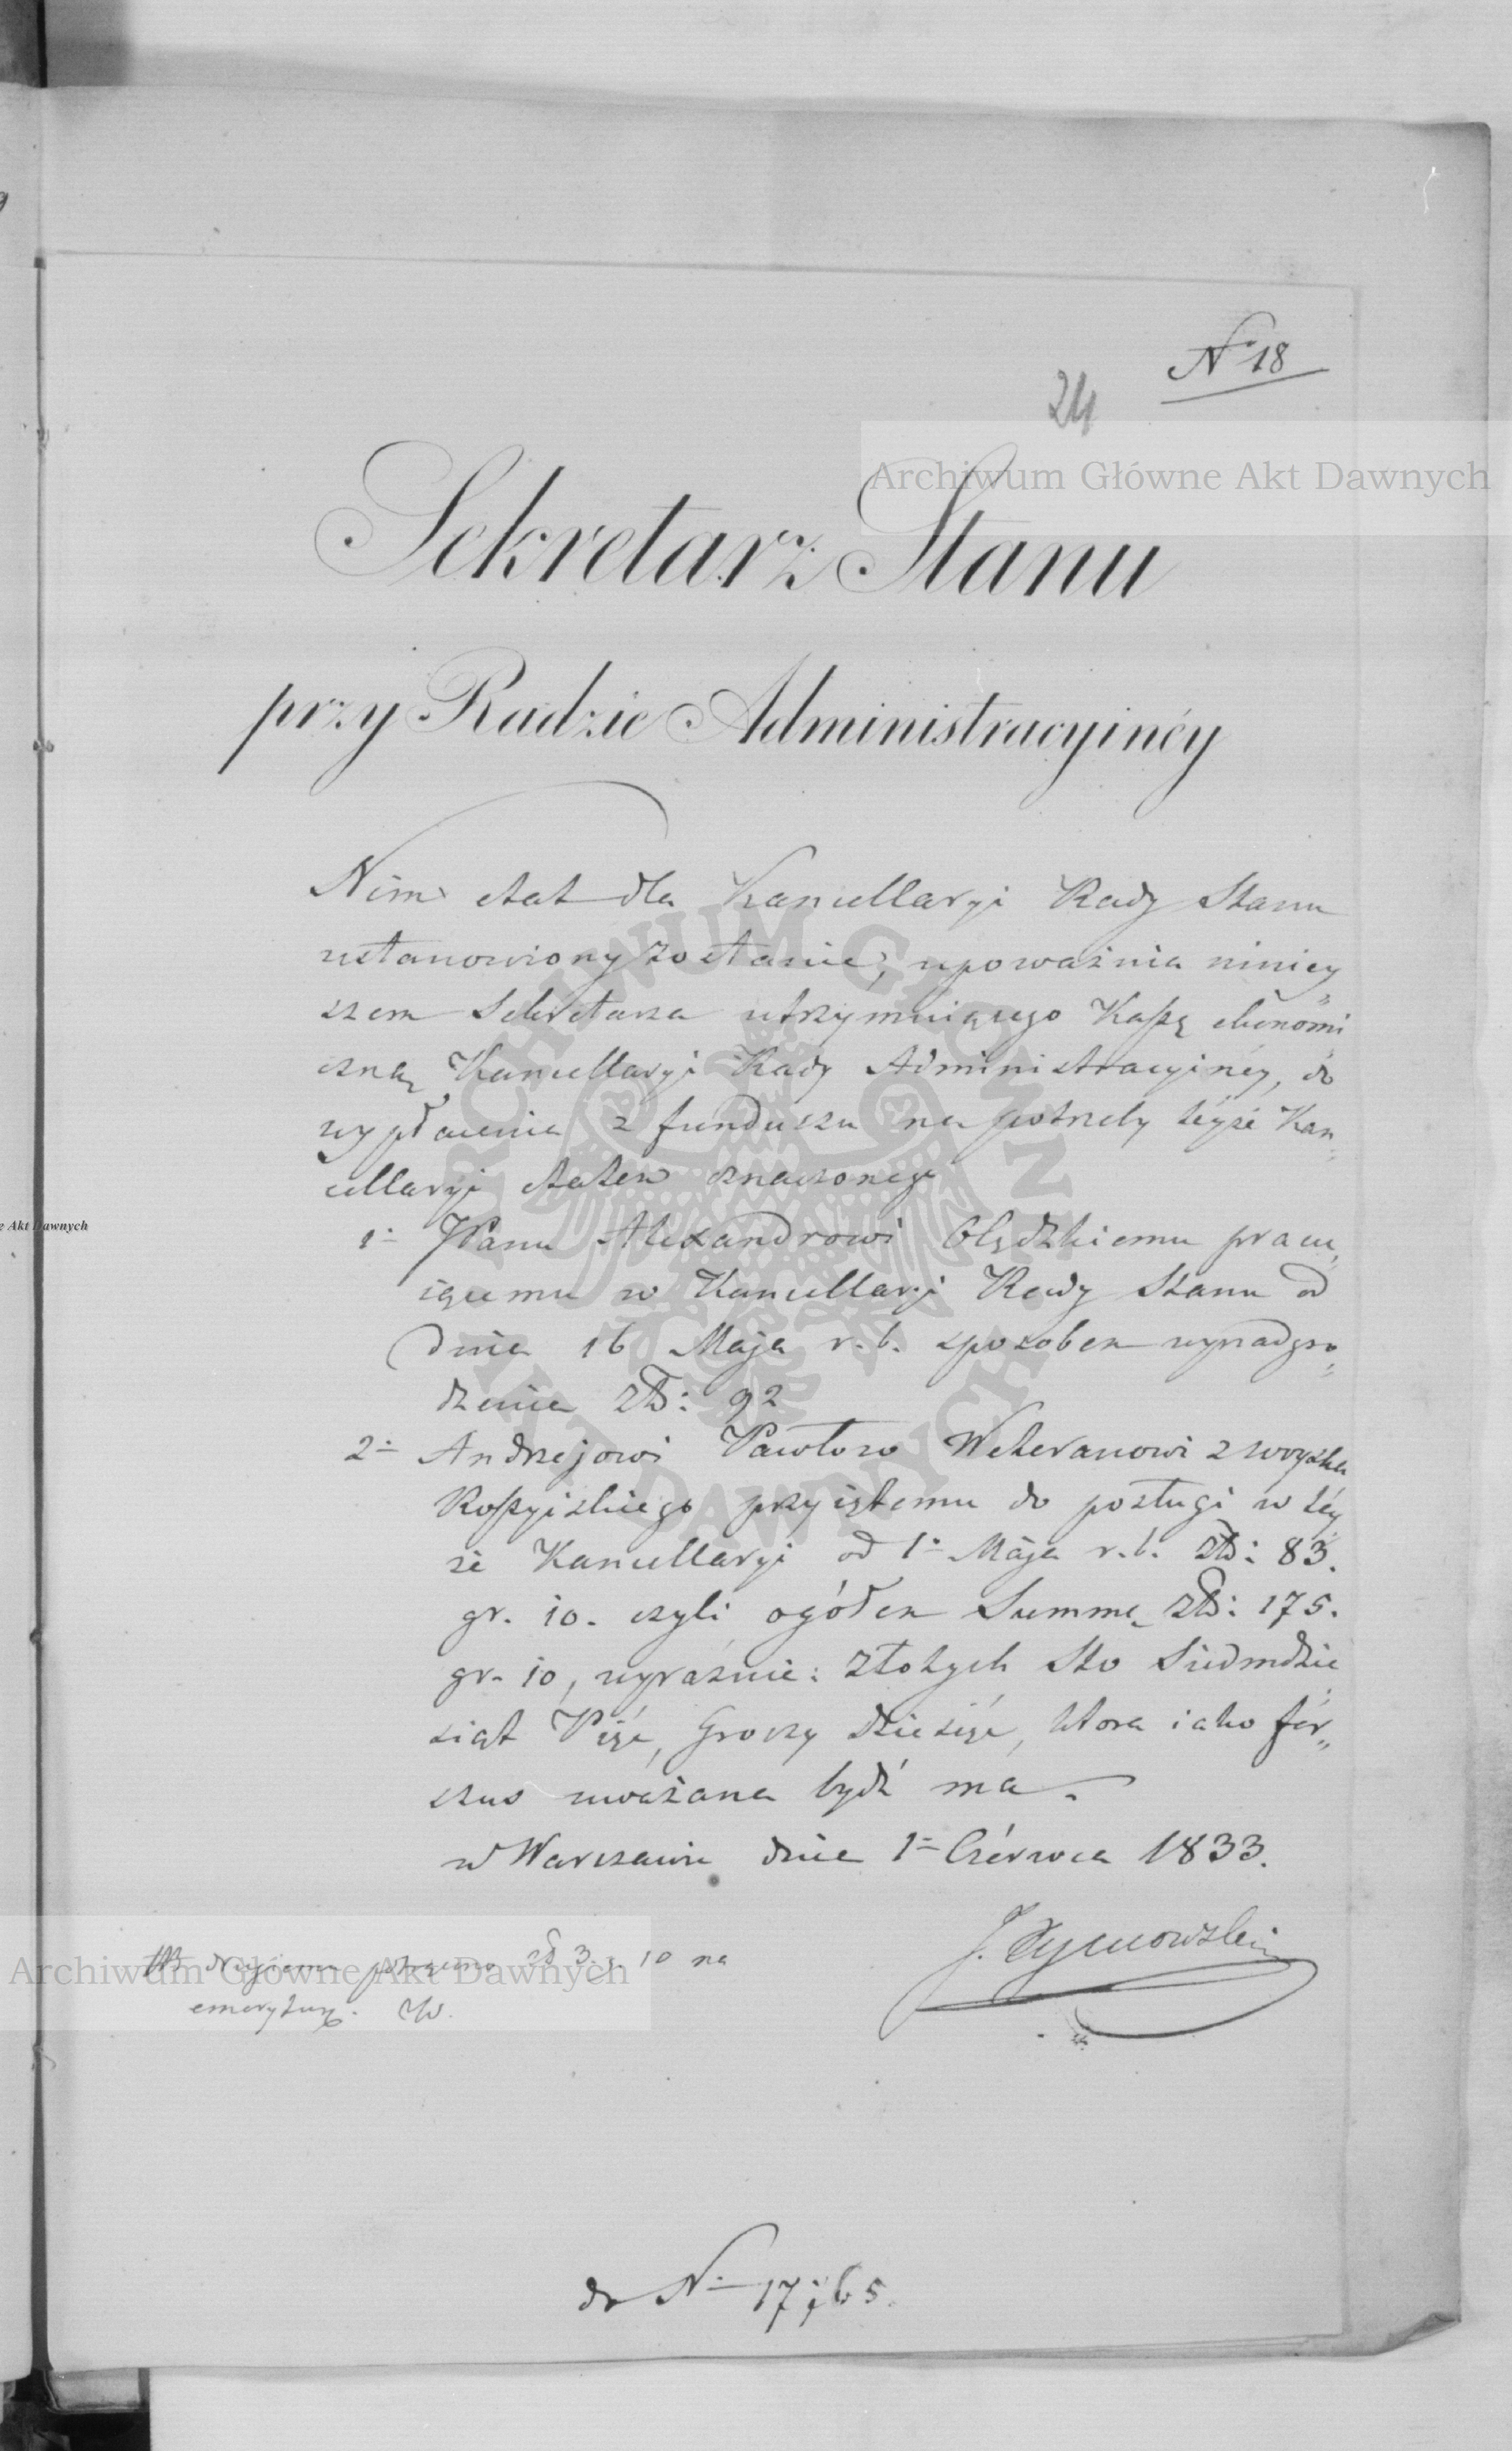 N° 18
24
Archiwum Główne Akt Dawnych
Sekretarz Stanu
przy Radzie Administracyinéy
Nim etat dla Kancellaryi Rady Stanu
ustanowiony zostanie, upoważnia niniey
szem Sekretarza utrzymuiącego Kaſsę ekonomi„
czną Kancellaryi Rady Administracyinéy, do
wypłacenia z funduszu na potrzeby téyże Kan„
cellaryi etatem oznaczonego
1° JPanu Alexandrowi Olędzkiemu pracu„
iącemu w Kancellaryi Rady Stanu od
dnia 16 Maja r. b. sposobem wynadgro„
dzenia Zł: 92
2° Andrzejowi Pawłow Weteranowi z woyska
Roſsyiskiego przyiętemu do posługi w téy
że Kancellaryi od 1° Maja r. b. Zł: 83.
gr. 10. czyli ogółem Summę Zł: 175.
gr. 10, wyraźnie: Złotych Sto Siedmdzie
siąt Pięć, Groszy dziesięć, która iako for„
szus uważana bydź ma.
w Warszawie dnia 1° Czérwca 1833.
J. Tymowski
NB drugiemu potrącono zł 3 g. 10 na
emeryturę.
do N° 17,765.
ARCHIWUM GŁÓWNE AKT DAWNYCH
e Akt Dawnych
Archiwum Główne Akt Dawnych